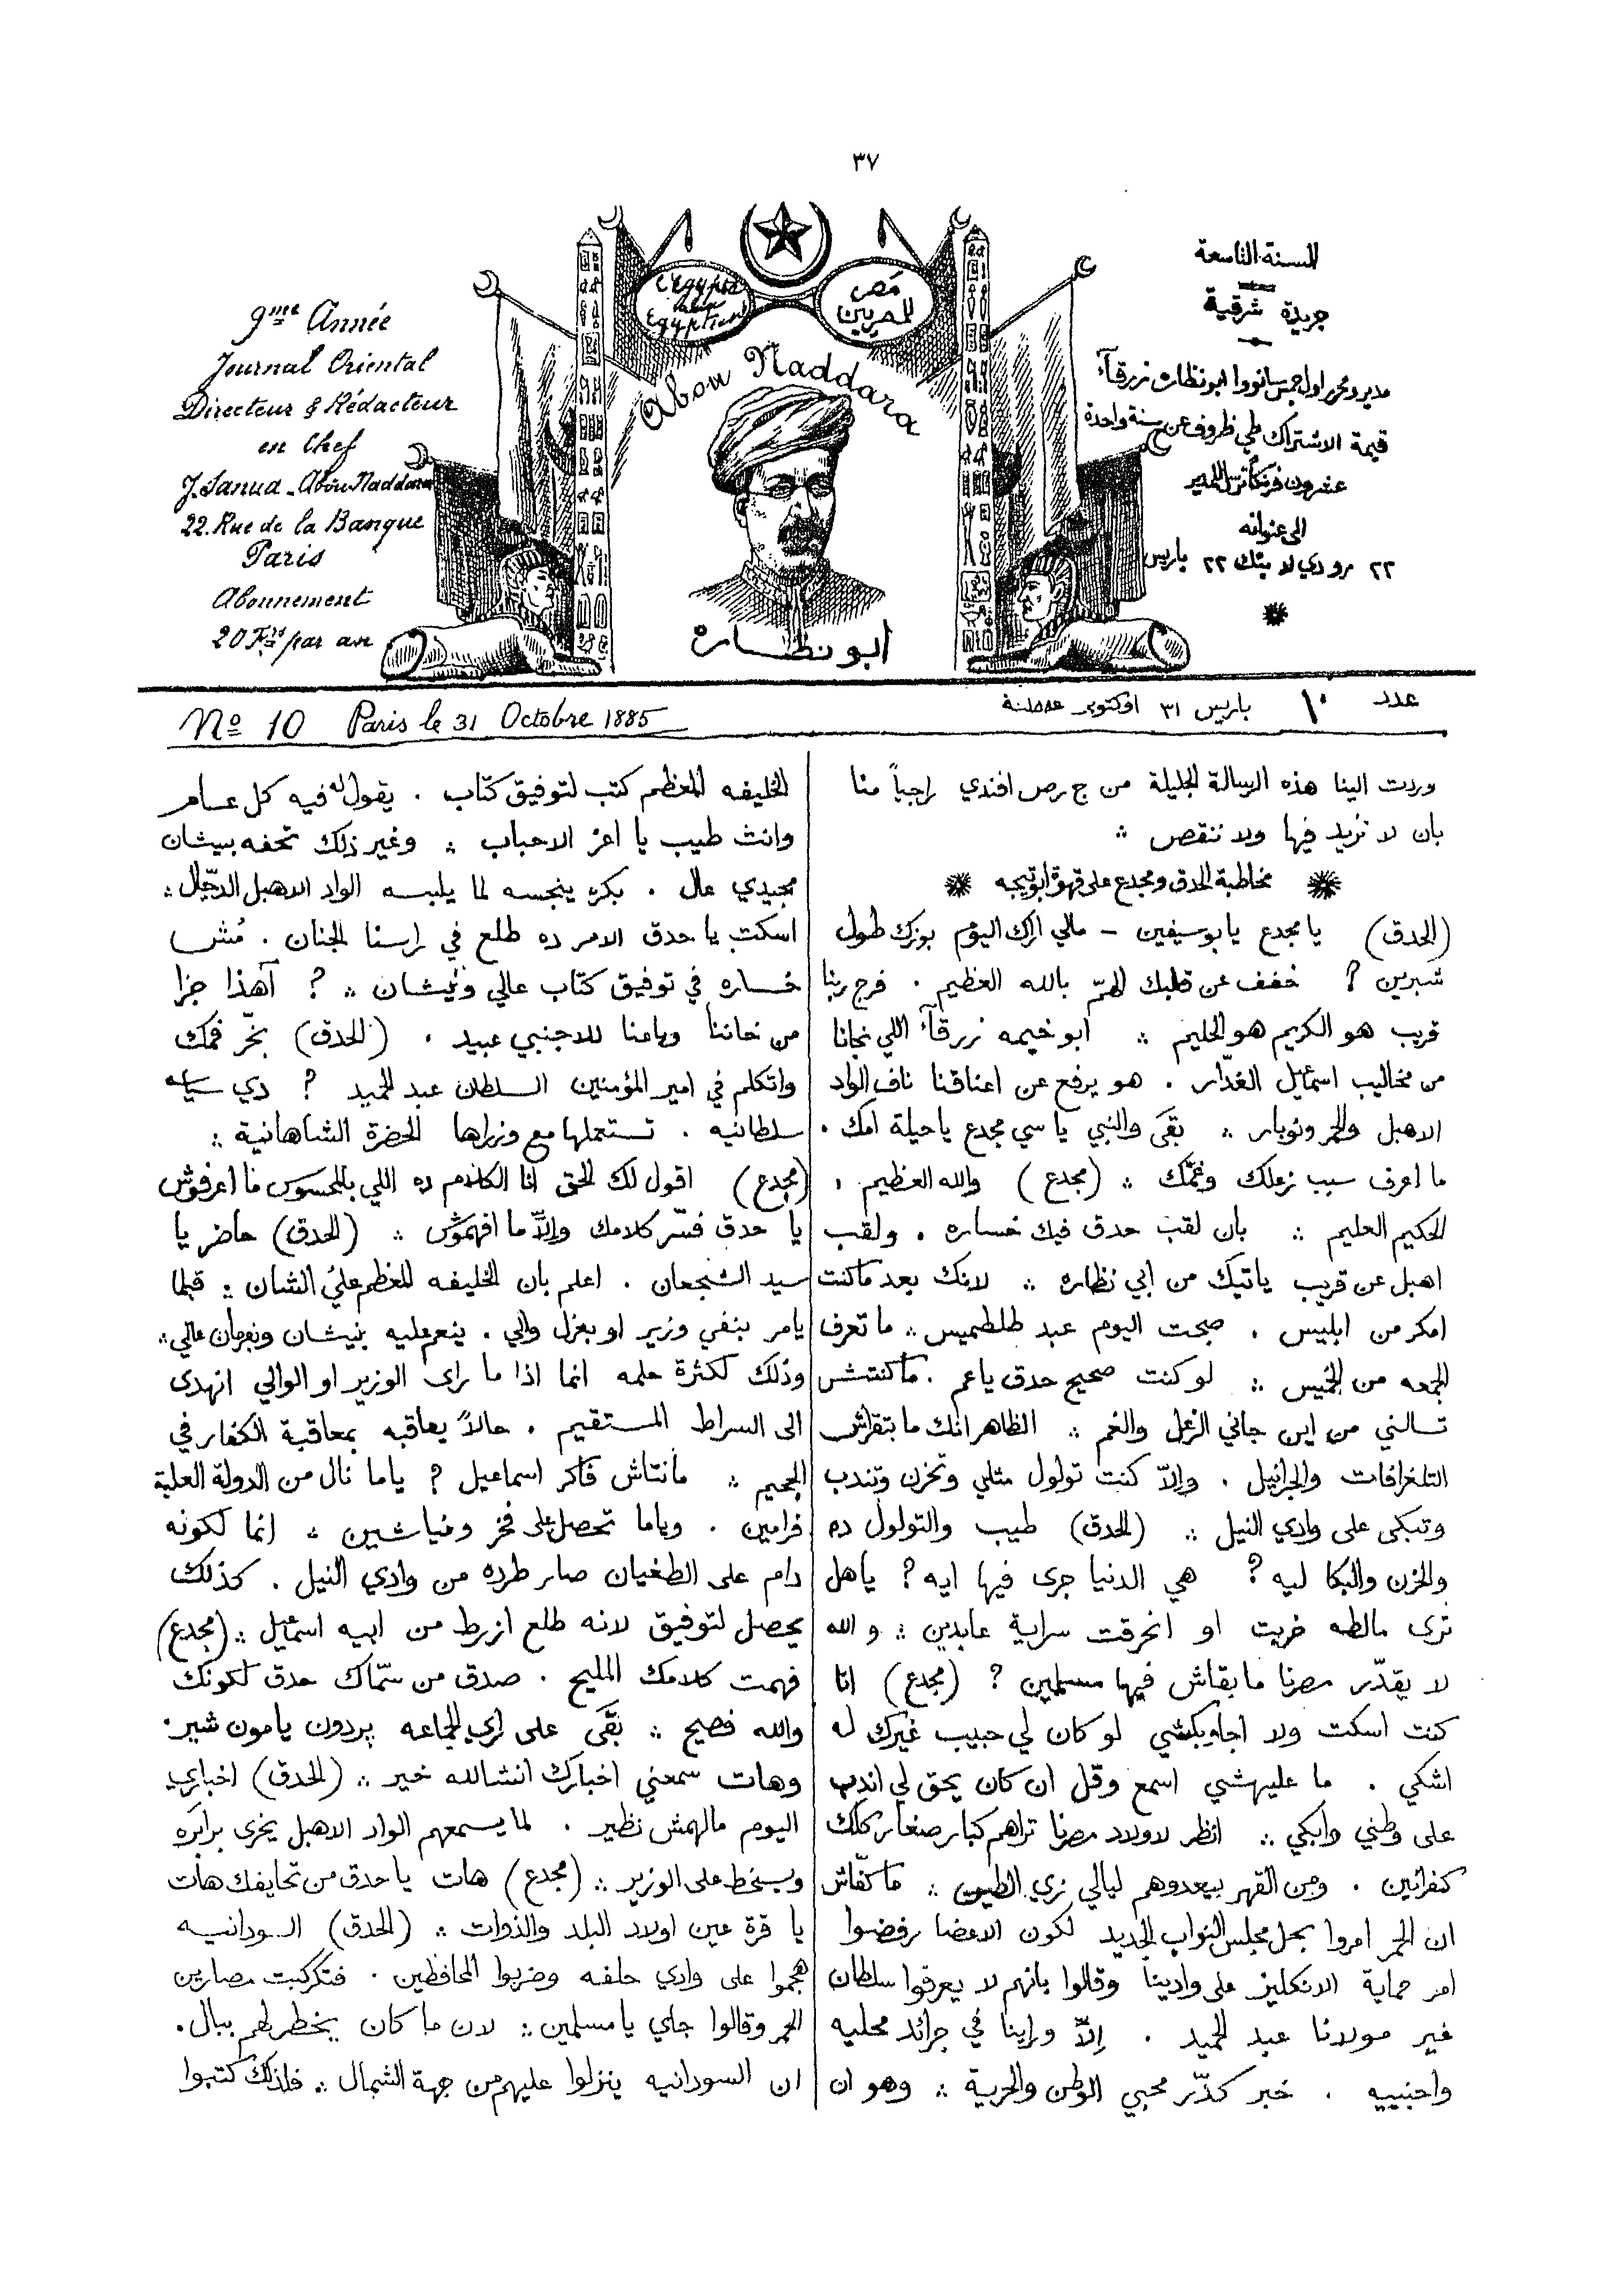 ٣٧
9me Année
Journal Oriental
Directeur & Rédacteur
en Chef
J. Sanua - Abou Naddara
22. Rue de la Banque
Paris
Abonnement
20 Frs par an
l'égypte
aux
Egyptiens
مصر
للمصريين
Abou Naddara
ابو نظاره
السنة التاسعة
جريدة شرقية
مدير ومحرر اول جمس سانووا ابو نظاره زرقآء
قيمة الاشتراك طي ظروف عن سنة واحدة
عشرون فرنكا ترسل للمدير
الى عنوانه
٢٢ رو دي لا بنك ٢٢ باريس
Nº 10 Paris le 31 Octobre 1885
عدد ١٠ باريس ٣١ اوكتوبر سنة
وردت الينا هذه الرسالة الجليلة من ج رص افندي راجياً منا
بان لا نزيد فيها ولا ننقص ؞
مخاطبة الحدق ومجدع على قهوة ابو تيجه
(الحدق) يا مجدع يا بوسيفين - مالي اراك اليوم بوزك طول
شبرين ? خفف عن قلبك الهمّ بالله العظيم . فرج ربنا
قريب هو الكريم هو الحليم ؞ ابو خيمه زرقآء اللي نجانا
من مخاليب اسمٰعيل الغدّار . هو يرفع عن اعناقنا ناف الواد
الاهبل والحمر ونوبار ؞ بقى والنبي يا سي مجدع يا حيلة امك .
ما اعرف سبب زعلك وغمّك ؞ (مجدع) والله العظيم ،
الحكيم العليم ؞ بان لقب حدق فيك خساره . ولقب
اهبل عن قريب ياتيك من ابي نظاره ؞ لانك بعد ما كنت
امكر من ابليس . صبحت اليوم عبد طلطميس ؞ ما تعرف
الجمعه من الخميس ؞ لو كنت صحيح حدق يا عم . ما كنتش
تسالني من اين جاني الزعل والغم ؞ الظاهر انك ما بتقراش
التلغرافات والجرانيل . وإلاّ كنت تولول مثلي وتحزن وتندب
وتبكى على وادي النيل ؞ (الحدق) طيب والتولول ده
والحزن والبكا ليه ? هي الدنيا جرى فيها ايه ? ياهل
ترى مالطه خربت او انحرقت سراية عابدين ؞ و الله
لا يقدّر مصرنا ما بقاش فيها مسلمين ? (مجدع) انا
كنت اسكت ولا اجاوبكشي لو كان لي حبيب غيرك له
اشكي . ما عليهشي اسمع وقل ان كان يحق لي اندب
على وطني وابكي ؞ انظر لاولاد مصرنا تراهم كبار صغار كلك
كنفرانين . ومن القهر بيعدوهم ليالي زي الطين ؞ ما كفّاش
ان الحمر امروا بحل مجلس النواب الجديد لكون الاعضا رفضوا
امر حماية الانكليز على وادينا وقالوا بانهم لا يعرفوا سلطان
غير مولانا عبد الحميد . إلاّ وراينا في جرائد محليه
واجنبيه . خبر كدّر محبي الوطن والحرية ؞ وهو ان
الخليفه المعظم كتب لتوفيق كتاب . يقول له فيه كل عام
وانت طيب يا اعز الاحباب ؞ وغير ذلك تحفه بنيشان
مجيدي عال . بكره ينجسه لما يلبسه الواد الاهبل الدجّال ؞
اسكت يا حدق الامر ده طلع في راسنا الجنان . مُش
خساره في توفيق كتاب عالي ونيشان ؞ ? أهذا جزا
من خاننا وباعنا للاجنبي عبيد . (الحدق) بخّر فمك
واتكلم في امير المؤمنين السلطان عبد الحميد ? دي سياسه
سلطانيه . تستعملها مع وزراها الحضرة الشاهانية ؞
(مجدع) اقول لك الحق انا الكلام ده اللي بالمحسوس ما اعرفوش
يا حدق فسّر كلامك والاّ ما افهموش ؞ (الحدق) حاضر يا
سيد الشجعان . اعلم بان الخليفه المعظم عليّ الشان ؞ قبلما
يامر بنفي وزير او بعزل والي . ينعم عليه بنيشان وفرمان عالي ؞
وذلك لكثرة حلمه انما اذا ما راى الوزير او الوالي انهدى
الى السراط المستقيم . حالاً يعاقبه بمعاقبة الكفار في
الجحيم ؞ مانتاش فاكر اسماعيل ? ياما نال من الدولة العلية
فرامين . وياما تحصل على فخر ونياشين ؞ انما لكونه
دام على الطغيان صار طرده من وادي النيل . كذلك
يحصل لتوفيق لانه طلع ازرط من ابيه اسمٰعيل ؞ (مجدع)
فهمت كلامك المليح . صدق من سمّاك حدق لكونك
والله فصيح ؞ بقى على راي الجماعه پردون يا مون شير .
وهات سمعني اخبارك انشالله خير ؞ (الحدق) اخباري
اليوم مالهمش نظير . لما يسمعهم الواد الاهبل يخرى برابره
ويسخط على الوزير ؞ (مجدع) هات يا حدق من تحايفك هات
يا قرة عين اولاد البلد والذوات ؞ (الحدق) السودانيه
هجموا على وادي حلفه وضربوا المحافظين . فتكركبت مصارين
الحمر وقالوا جاي يا مسلمين ؞ لان ما كان يخطر لهم ببال .
ان السودانيه ينزلوا عليهم من جهة الشمال ؞ فلذلك كتبوا